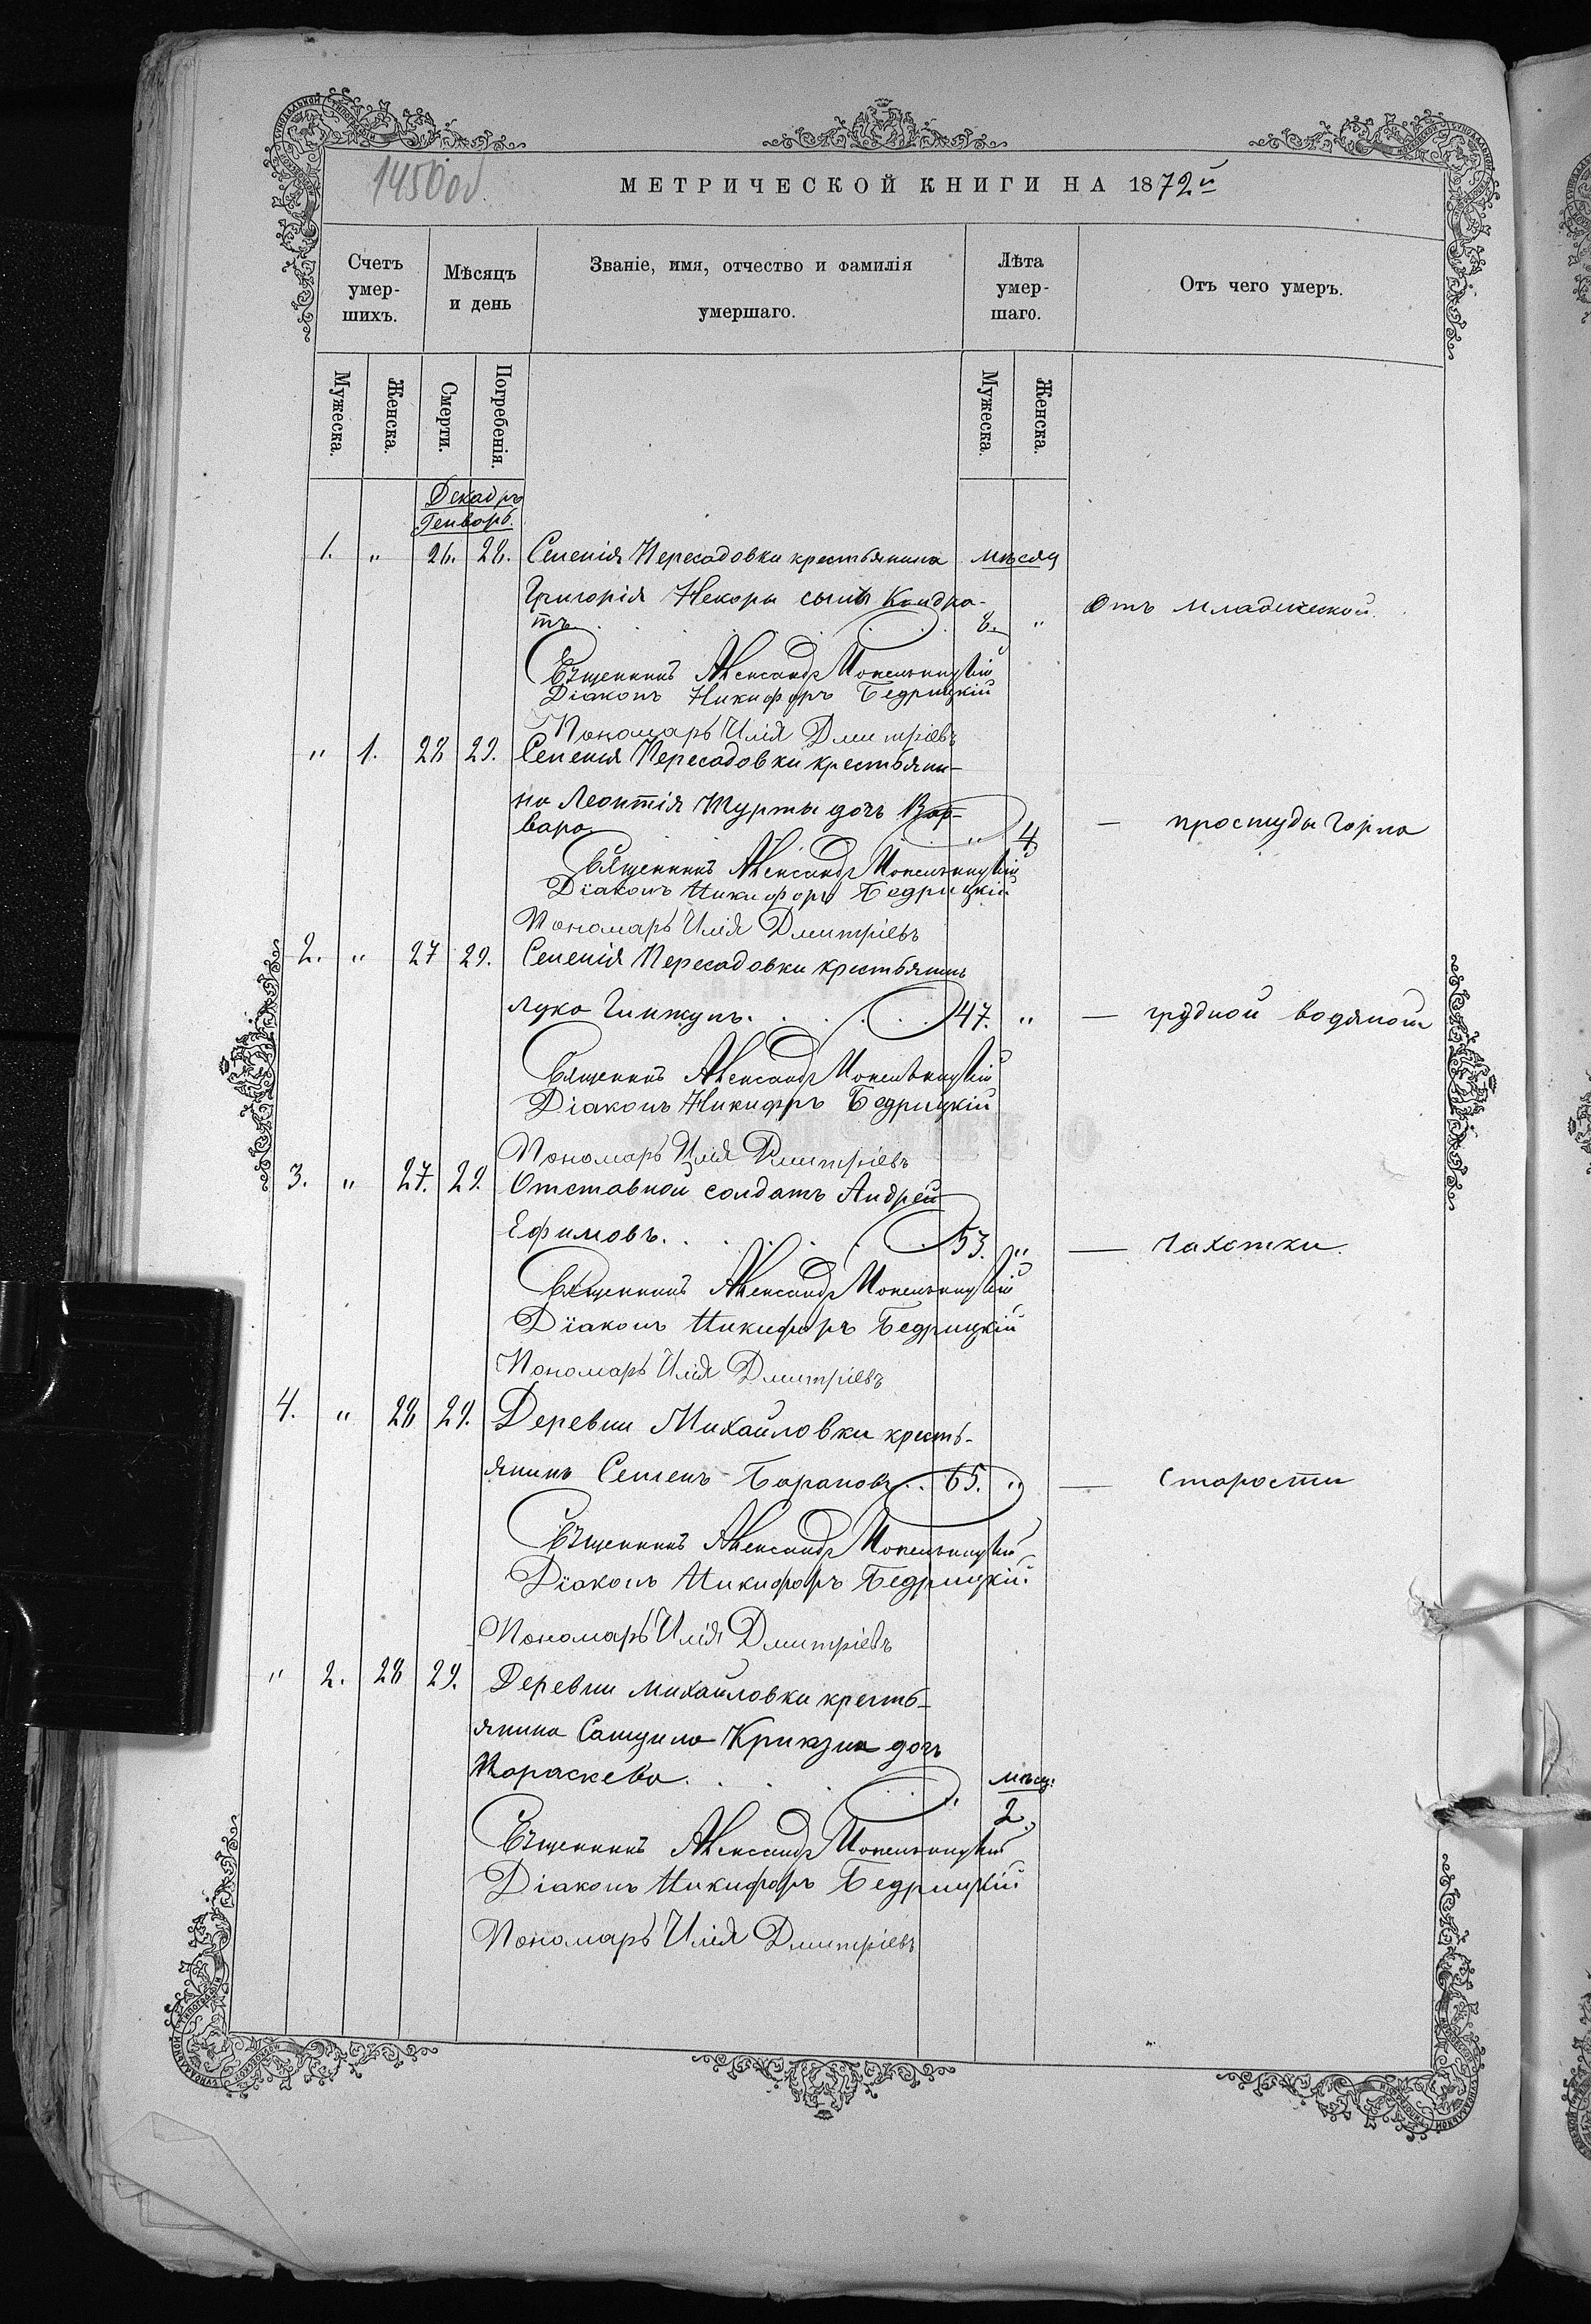 1450 об.
МЕТРИЧЕСКОЙ КНИГИ НА 1872й
Счетъ умер-шихъ.
Мѣсяцъ и день
Званіе, имя, отчество и фамилія умершаго.
Лѣта умер-шаго.
Отъ чего умеръ.
Мужеска. Женска. Смерти. Погребенія. Мужеска. Женска.
Генварь.
1. " 26. 28. Селенія Пересадовки крестьянина мѣсяц
Григорія Некоры сынъ Кондра-
тъ. 8. " Отъ младенской.
Священникъ Александр
Діаконъ Никифоръ Бедрицкій
Пономарь Илія Дмитріевъ
" 1. 28 29. Селенія Пересадовки крестьяни-
на Леонтія Шурты дочь Вар-
вара " 4. — простуды горла
Священникъ Александр
Діаконъ Никифоръ Бедрицкій
Пономарь Илія Дмитріевъ
2. " 27 29. Селенія Пересадовки крестьянинъ
Лука 47. " — грудной водяной
Священникъ Александр
Діаконъ Никифоръ Бедрицкій
Пономарь Илія Дмитріевъ
3. " 27. 29. Отставной солдатъ Андрей
Ефимовъ. 53. " — Чахотки.
Священникъ Александр
Діаконъ Никифоръ Бедрицкій
Пономарь Илія Дмитріевъ
4. " 28 29. Деревни Михайловки кресть-
янинъ Семенъ Барановъ 65. " — Старости
Священникъ Александр
Діаконъ Никифоръ Бедрицкій
Пономарь Илія Дмитріевъ
" 2. 28 29. Деревни Михайловки кресть-
янина Самуила дочь
Параскева. " мѣсяц. 2.
Священникъ Александр
Діаконъ Никифоръ Бедрицкій
Пономарь Илія Дмитріевъ